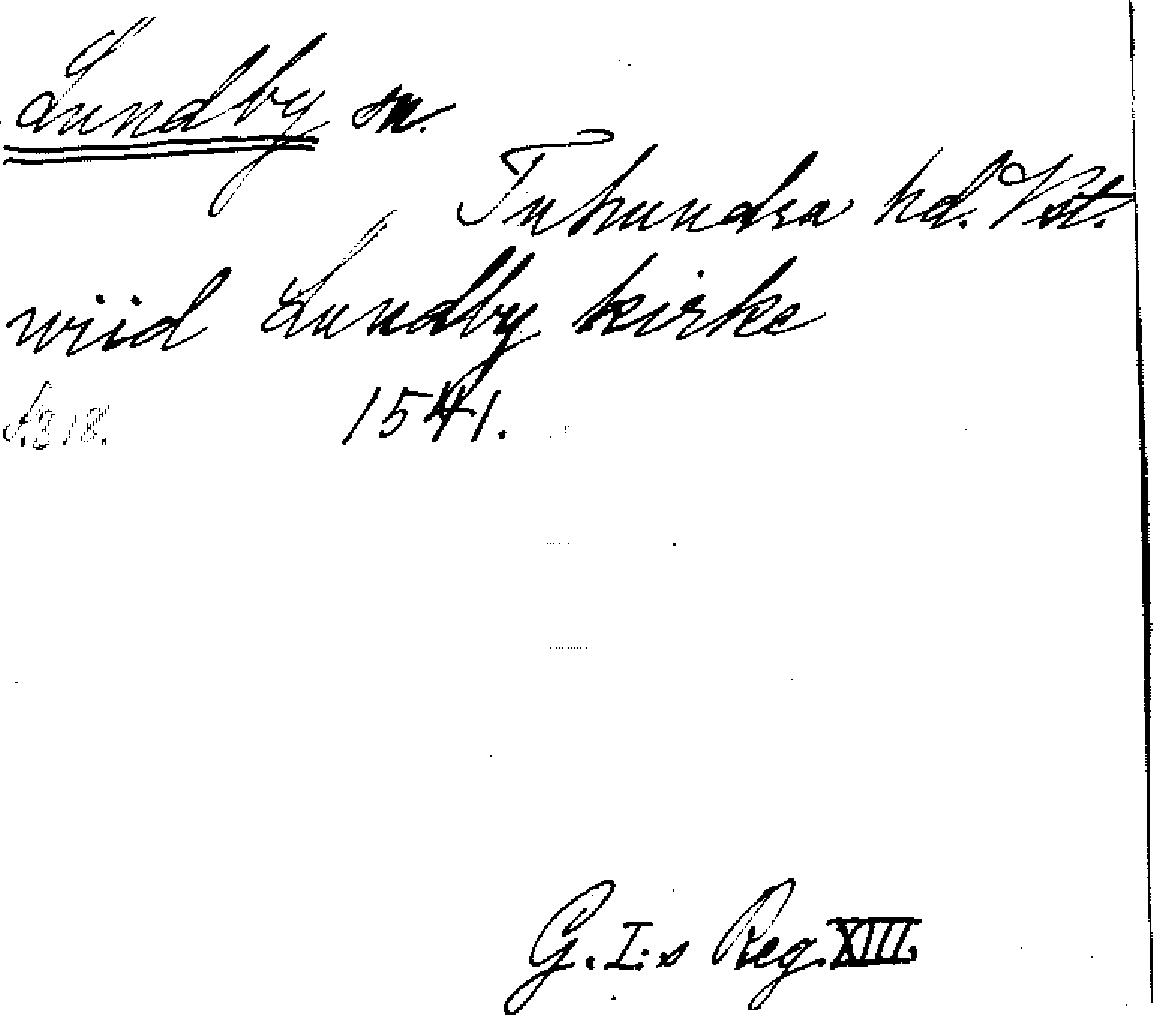 Lundby sn.
Tuhundra hd. Vstt.
wiid Lundby kirke
s. 318. 1541.
G. I:s Reg. XIII.